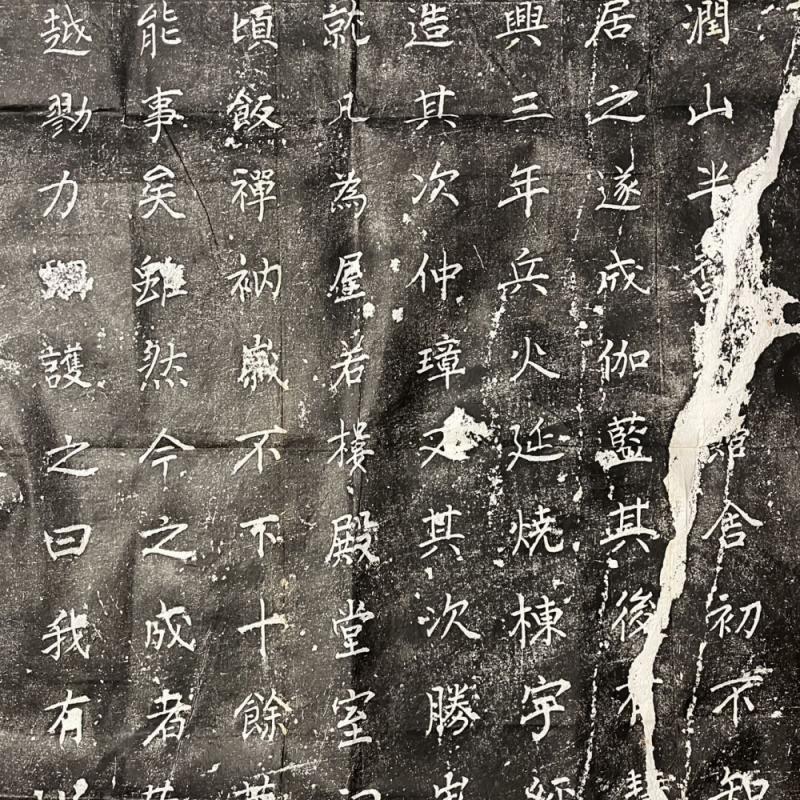 潤山半舍初不知
居之遂成伽藍其後
興三年兵火延燒棟宇
造其次仲璋又其次勝
就凡為屋若樓殿堂室
頃飯禪衲歲不下十餘
能事矣雖然今之成者
越勠力護之曰我有